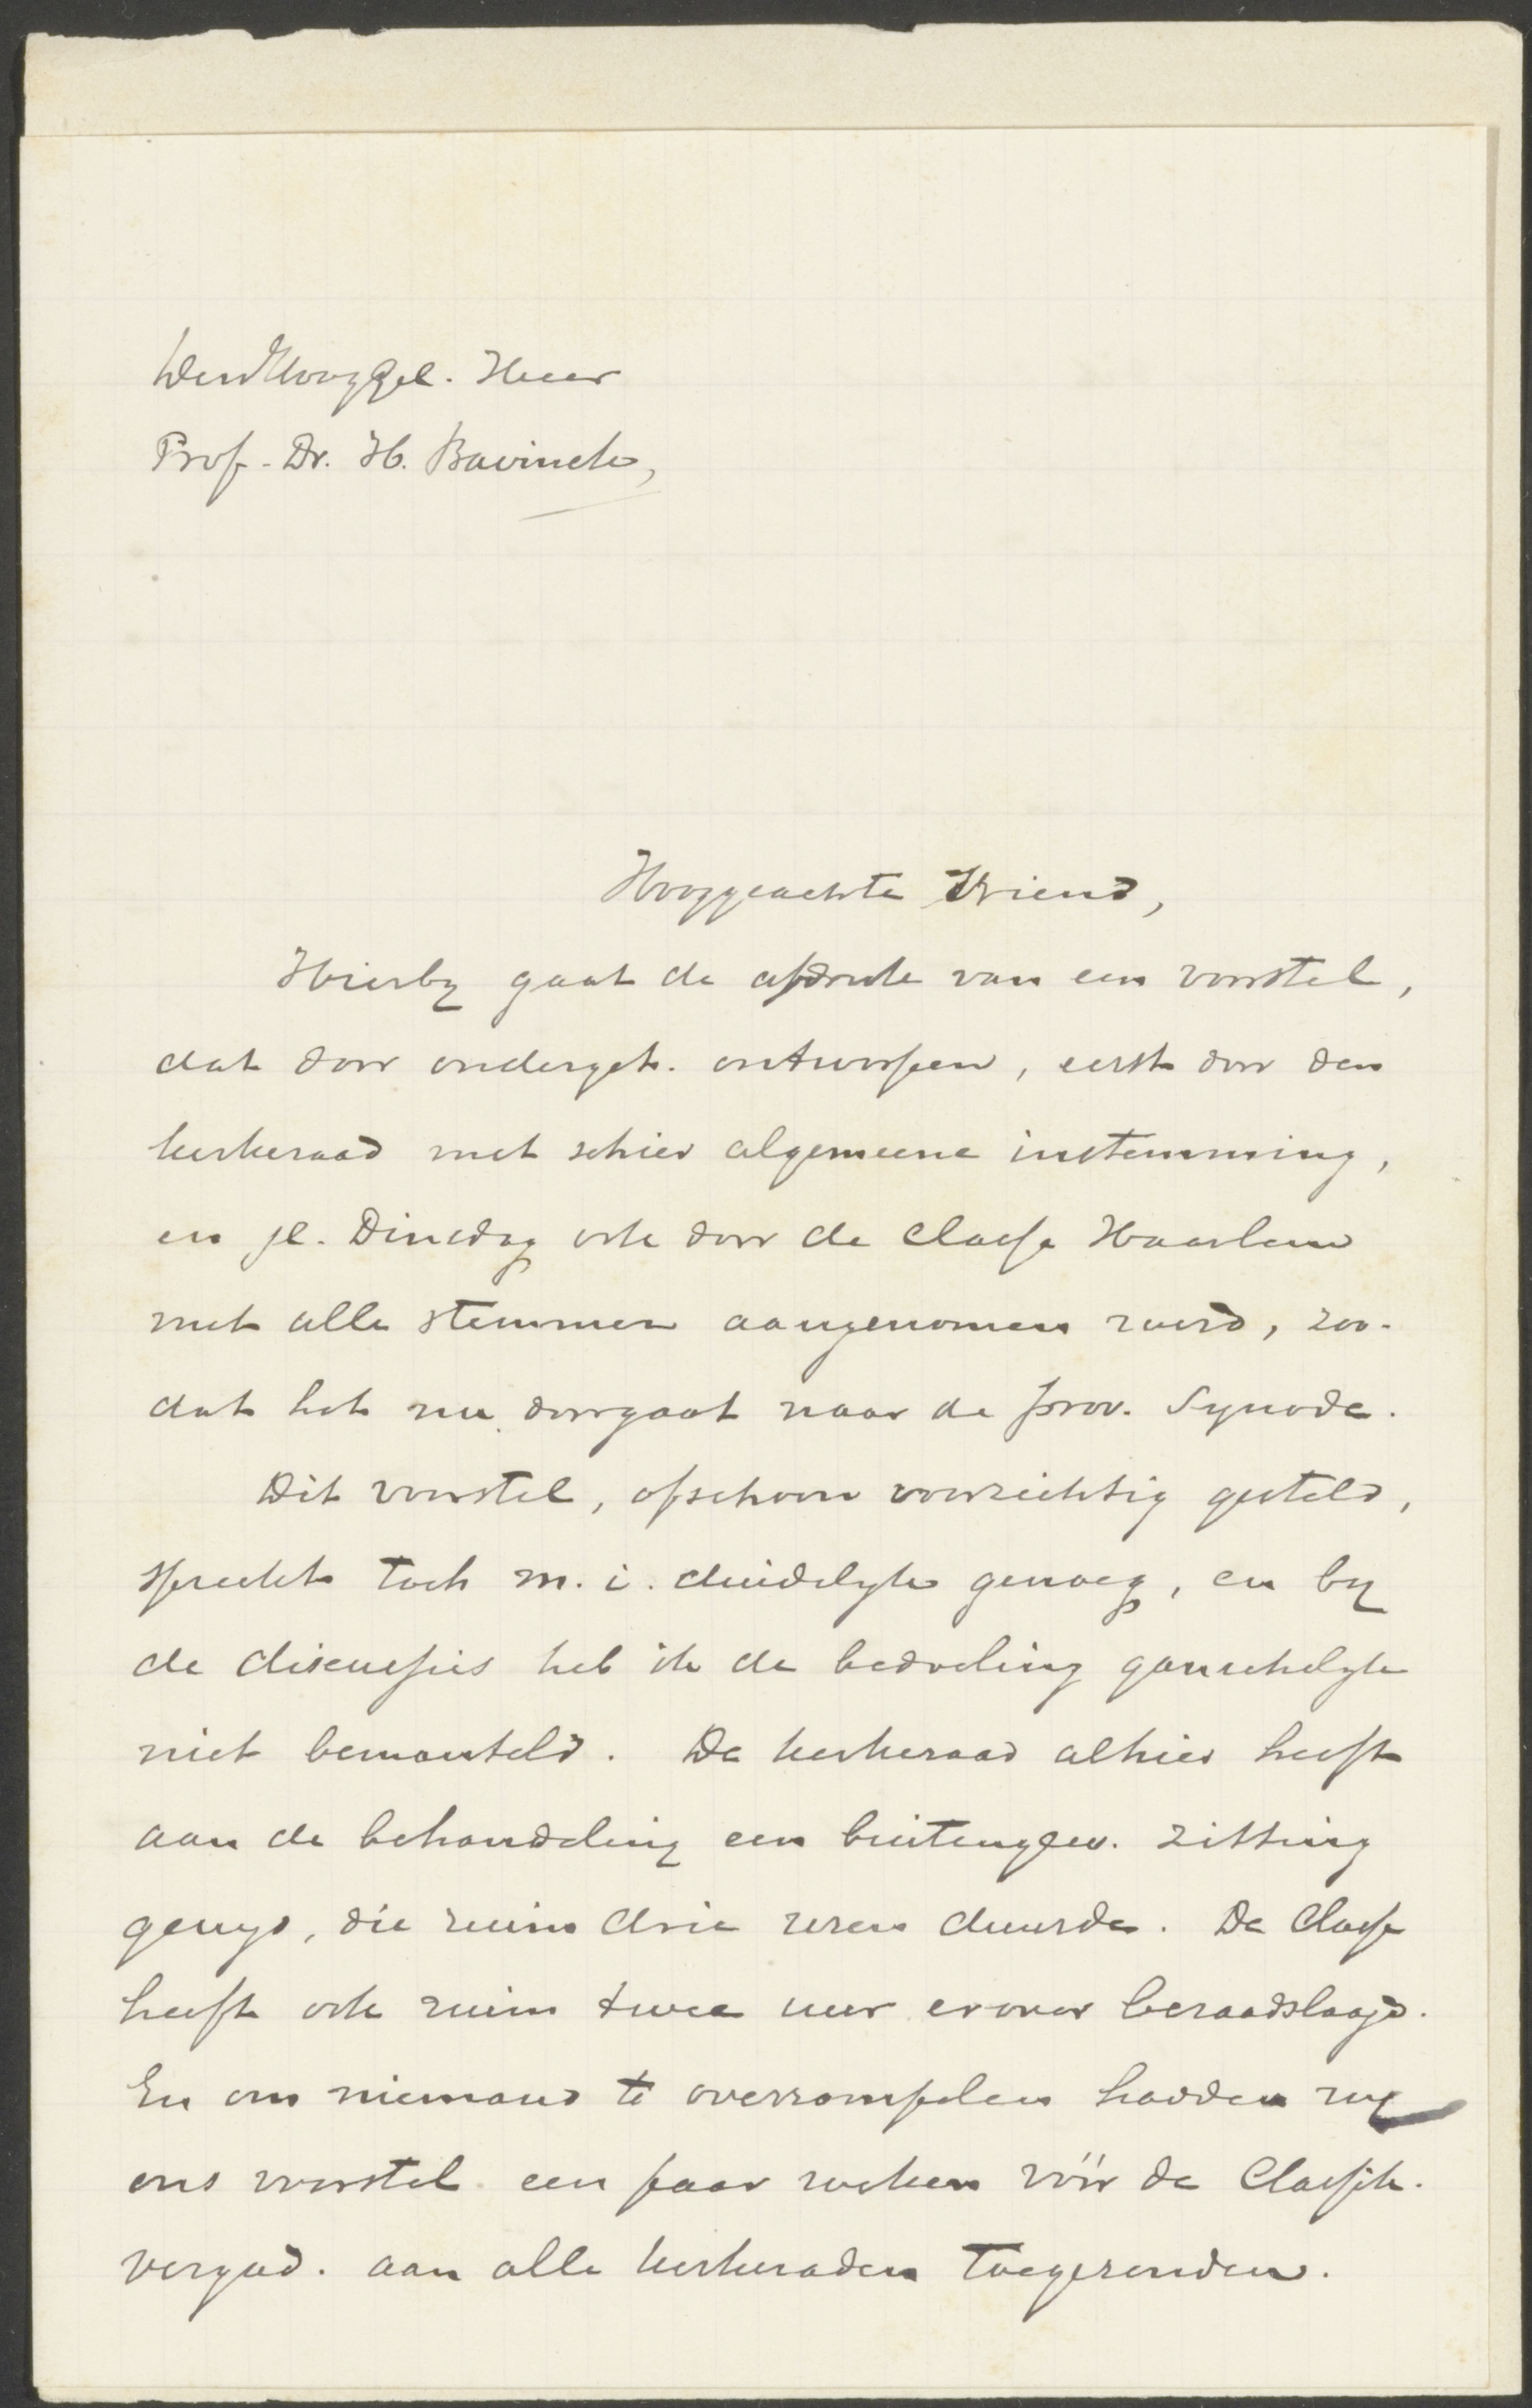 WelEdHooggel. Heer
Prof. Dr. H. Bavinck,
Hooggeachte Vriend,
Hierby gaat de afdruk van een voorstel,
dat door onderget. ontworpen, eerst door den
kerkeraad met schier algemeene instemming,
en jl. Dinsdag ook door de classe Haarlem
met alle stemmen aangenomen werd, zoo-
dat het nu doorgaat naar de prov. Synode.
Dit voorstel, ofschoon voorzichtig gesteld,
spreekt toch m. i. duidelyk genoeg, en by
de discussies heb ik de bedoeling ganschelyk
niet bemanteld. De kerkeraad alhier heeft
aan de behandeling een buitengew. zitting
gewyd, die ruim drie uren duurde. De Classe
heeft ook ruim twee uur erover beraadslaagd.
En om niemand te overrompelen hadden wy
ons voorstel een paar weken vóór de Classik.
vergad. aan alle kerkeraden toegezonden.